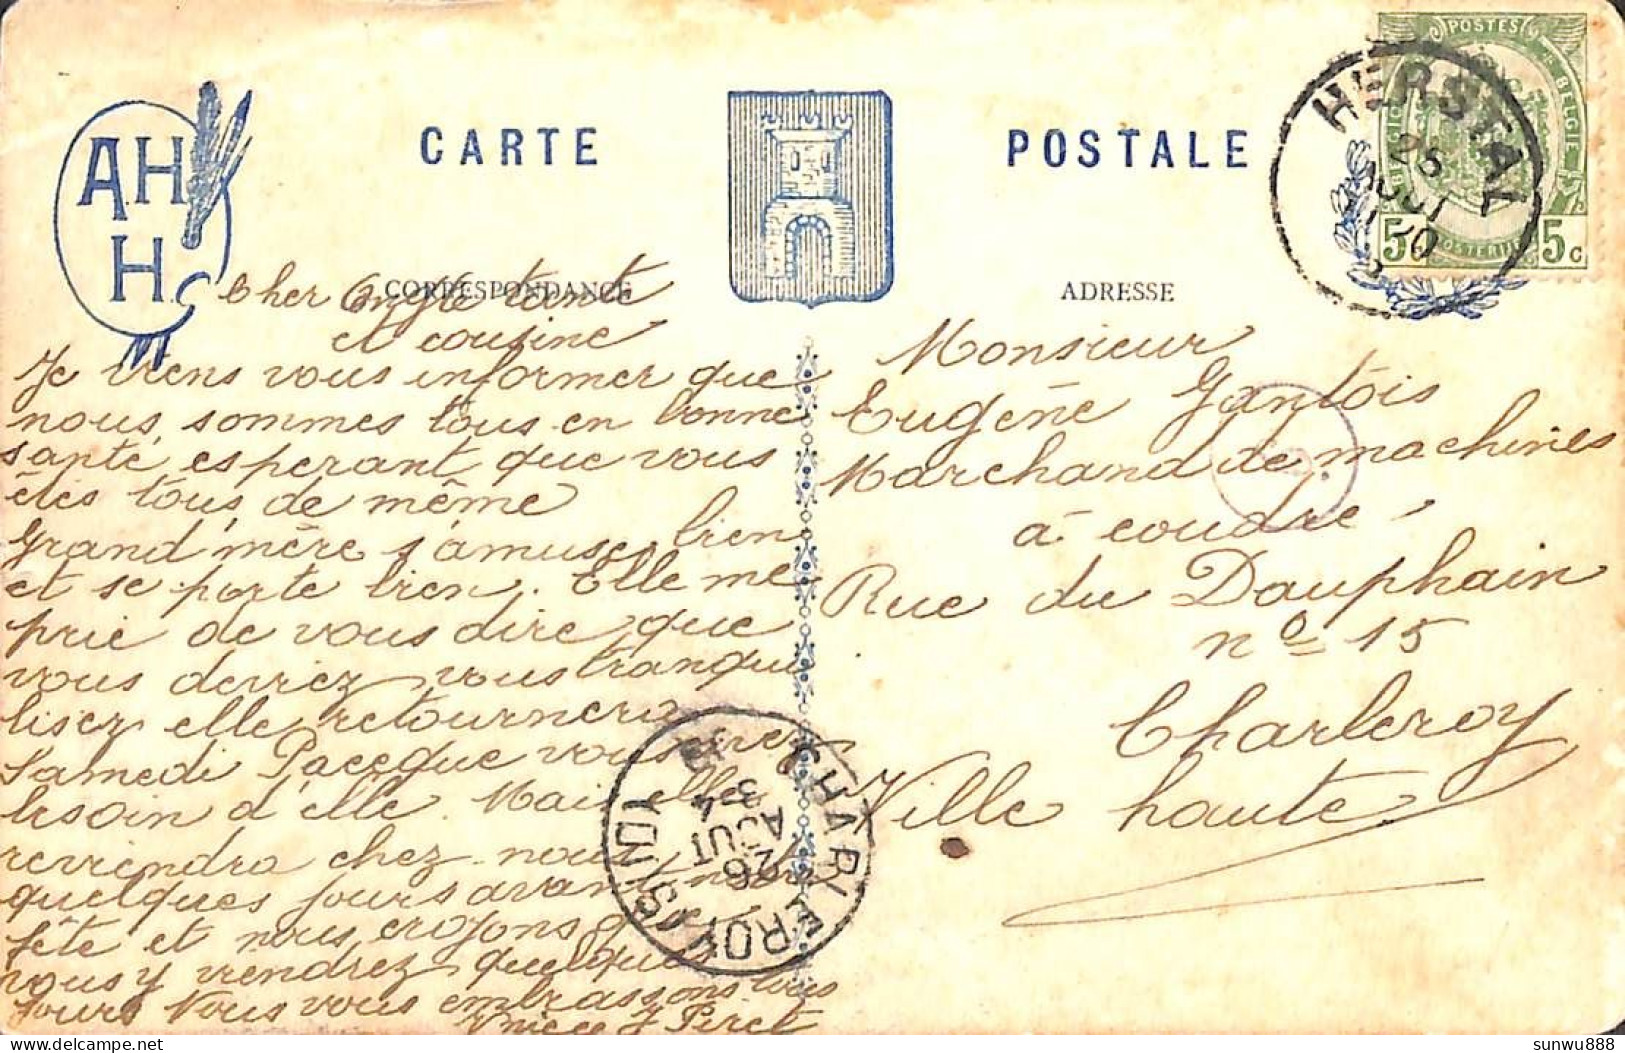 A.H
H.
CARTE POSTALE
CORRESPONDANCE
ADRESSE
POSTES
BELGIE
5 5c
HERSTAL
26
AOUT
Cher Oncle tante
et cousine
Je viens vous informer que
nous sommes tous en bonne
santé, esperant que vous
êtes tous de même
Grand'mère s'amuse bien
et se porte bien. Elle me
prie de vous dire que
vous devrez vous tranqui
lisez elle retournera
Samedi Paceque vous avez
besoin d'elle. Mais elle
reviendra chez nous
quelques jours avant notre
fête et nous croyons q
vous y viendrez quelques
jours Nous vous embrassons tous
Monsieur
Eugène Gantois
Marchand de machines
à coudre
Rue du Dauphain
nº 15
Charleroy
Ville haute
CHARLEROY (SUD)
3-4
AOUT
26
sunwu888